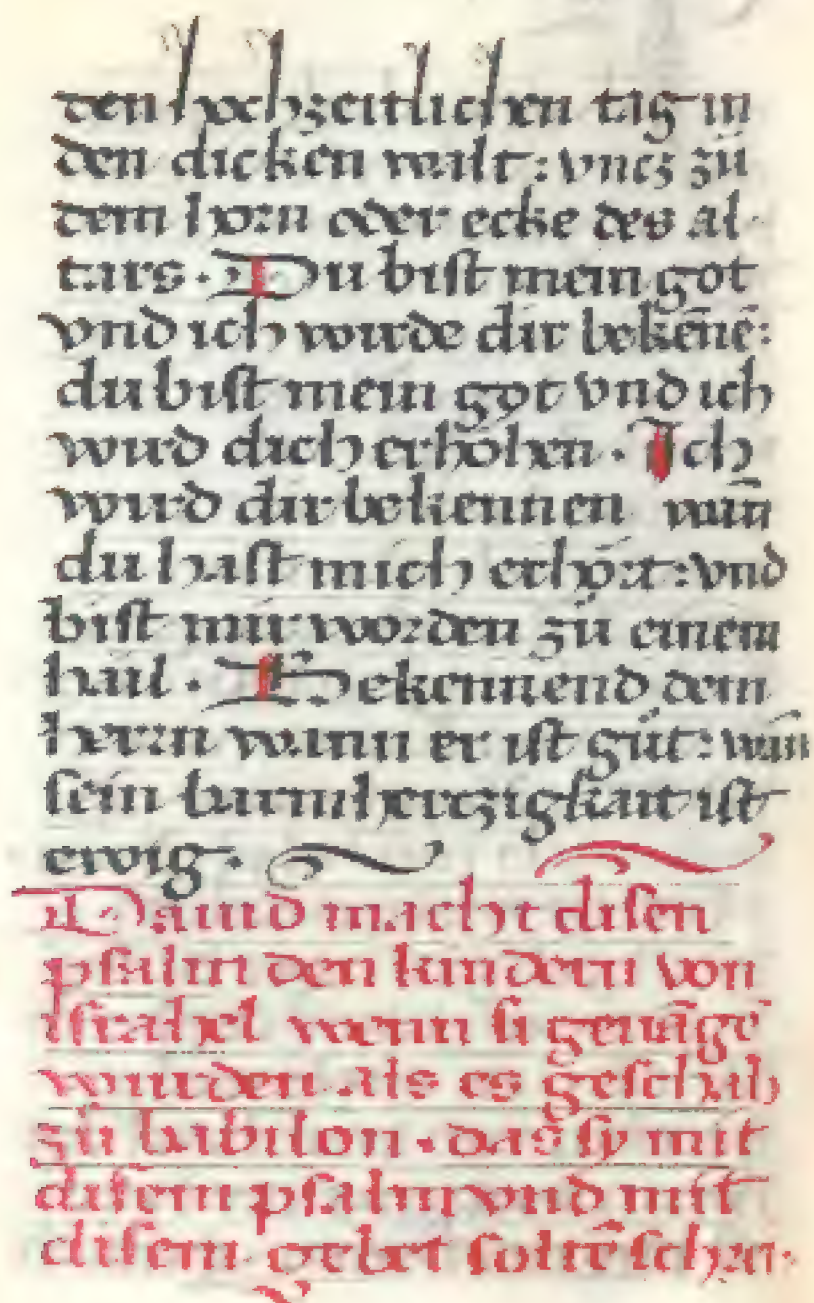 den hochzeitlichen tag in
den dicken walt: vncz zů
dem horn oder ecke des al-
tars. Du bist mein got
vnd ich wurde dir bekēnē:
du bist mein got vnd ich
wurd dich erhöhen. Ich
wurd dir bekennen wañ
du hast mich erhört: vnd
bist mir worden zů einem
hail. Bekennend dem
herrn wann er ist gůt: wañ
sein barmhertzigkait ist
ewig.
Dauid macht disen
psalm den kindern von
israhel wenn si geuāgē
wurden als es geschah
zů babilon. das sy mit
disem psalm vnd mit
disem gebet soltē schrei-